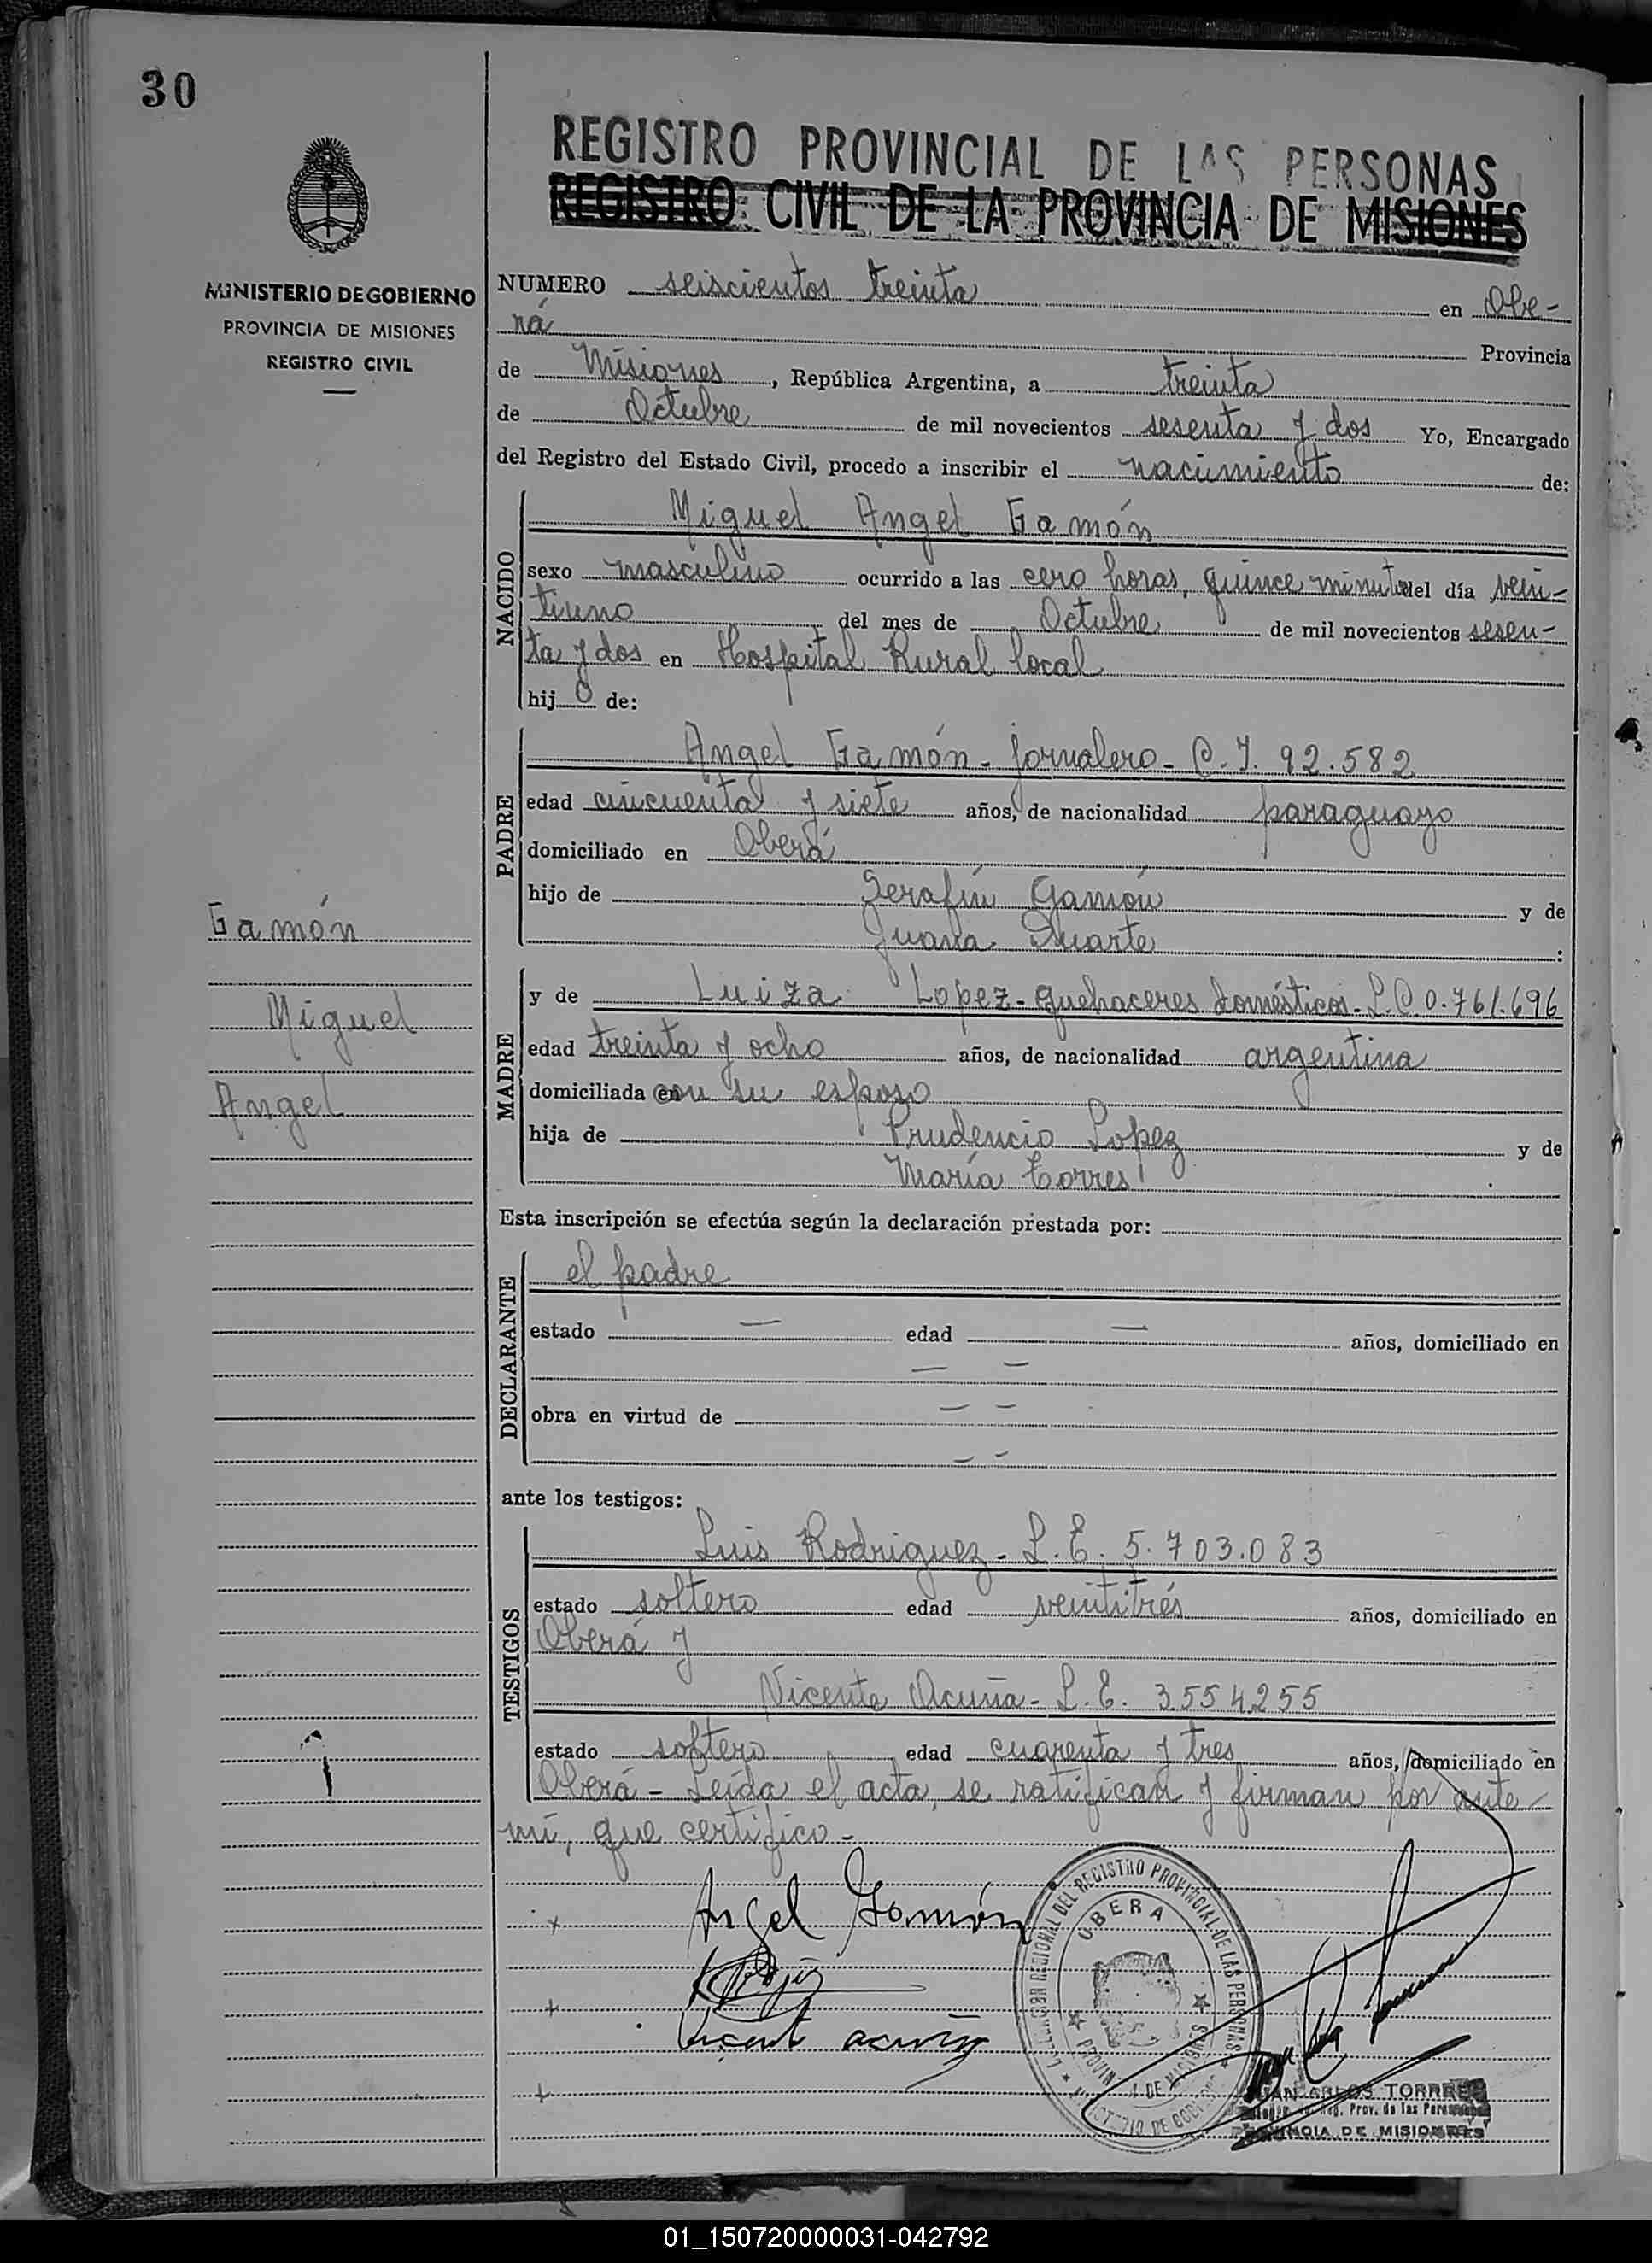 30
REGISTRO PROVINCIAL DE LAS PERSONAS
REGISTRO CIVIL DE LA PROVINCIA DE MISIONES
MINISTERIO DE GOBIERNO
PROVINCIA DE MISIONES
REGISTRO CIVIL
NUMERO seiscientos treinta en Obe-
rá Provincia
de Misiones, República Argentina, a treinta
de Octubre de mil novecientos sesenta y dos Yo, Encargado
del Registro del Estado Civil, procedo a inscribir el nacimiento de:
NACIDO
Miguel Angel Gamón
sexo masculino ocurrido a las cero horas, quince minutos del día vein-
tiuno del mes de Octubre de mil novecientos sesen-
ta y dos en Hospital Rural local
hijo de:
PADRE
Angel Gamón - jornalero - C.I. 92.582
edad cincuenta y siete años, de nacionalidad paraguayo
domiciliado en Oberá
hijo de Serafín Gamón y de
Juana Duarte :
Gamón
Miguel
Angel
MADRE
y de Luiza Lopez - quehaceres domésticos - L.C. 0.761.696
edad treinta y ocho años, de nacionalidad argentina
domiciliada con su esposo
hija de Prudencio Lopez y de
María Torres .
Esta inscripción se efectúa según la declaración prestada por:
DECLARANTE
el padre
estado — edad — años, domiciliado en
— —
obra en virtud de — —
— —
ante los testigos:
TESTIGOS
Luis Rodriguez - L.E. 5.703.083
estado soltero edad veintitrés años, domiciliado en
Oberá y
Vicente Acuña - L.E. 3.554255
estado soltero edad cuarenta y tres años, domiciliado en
Oberá - Leída el acta, se ratifican y firman por ante
mí, que certifico -
Angel Gamón
Vicent acuña
DELEGACION REGIONAL DEL REGISTRO PROVINCIAL DE LAS PERSONAS
OBERA
JUAN CARLOS TORRES
Reg. Prov. de las Personas
PROVINCIA DE MISIONES
01_150720000031-042792